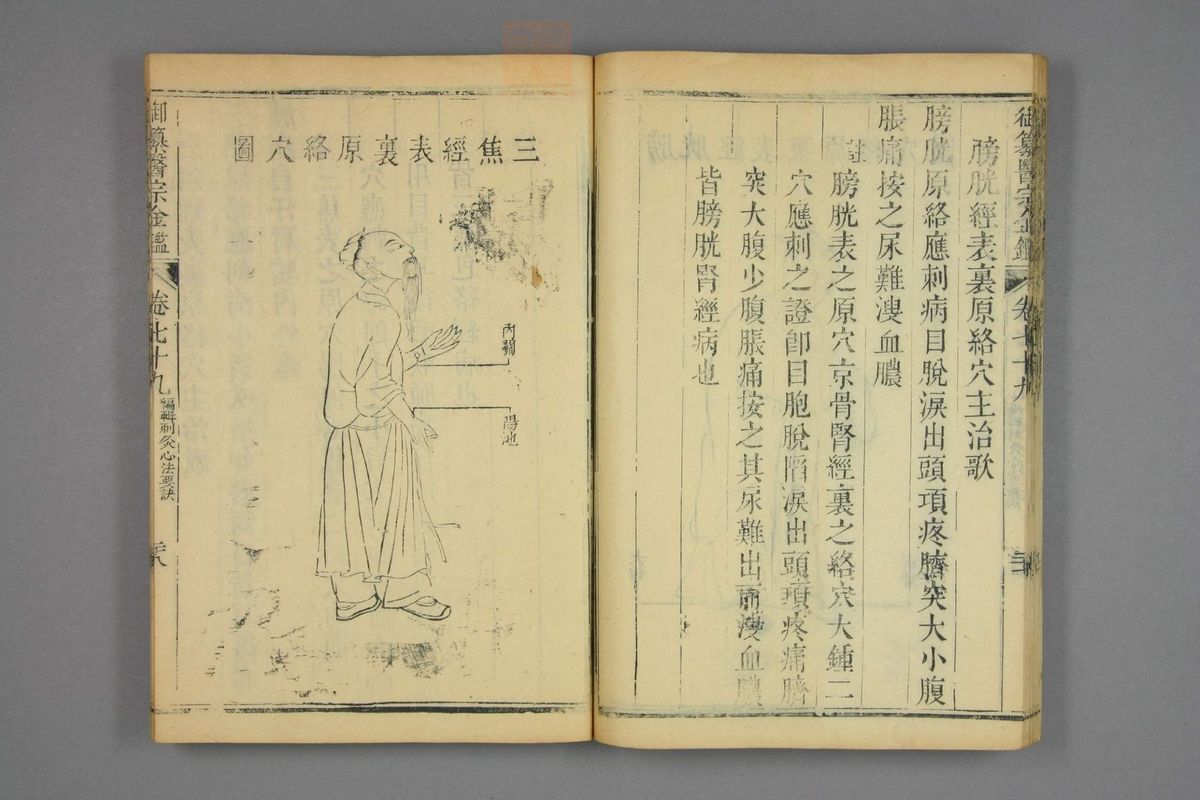 膀胱經表裏原絡穴主治歌
膀胱原絡應刺病目脫淚出頭項疼臍突大小腹
脹痛按之尿難溲血膿
註
膀胱表之原穴京骨腎經裏之絡穴大鍾二
穴應刺之證即目胞脫陷淚出頭項疼痛臍
突大腹少腹脹痛按之其尿難出而溲血膿
皆膀胱腎經病也
三焦經表裏原絡穴圖
內關
陽池
御纂醫宗金鑑
卷七十九
編輯刺灸心法要訣
御纂醫宗金鑑
卷七十九